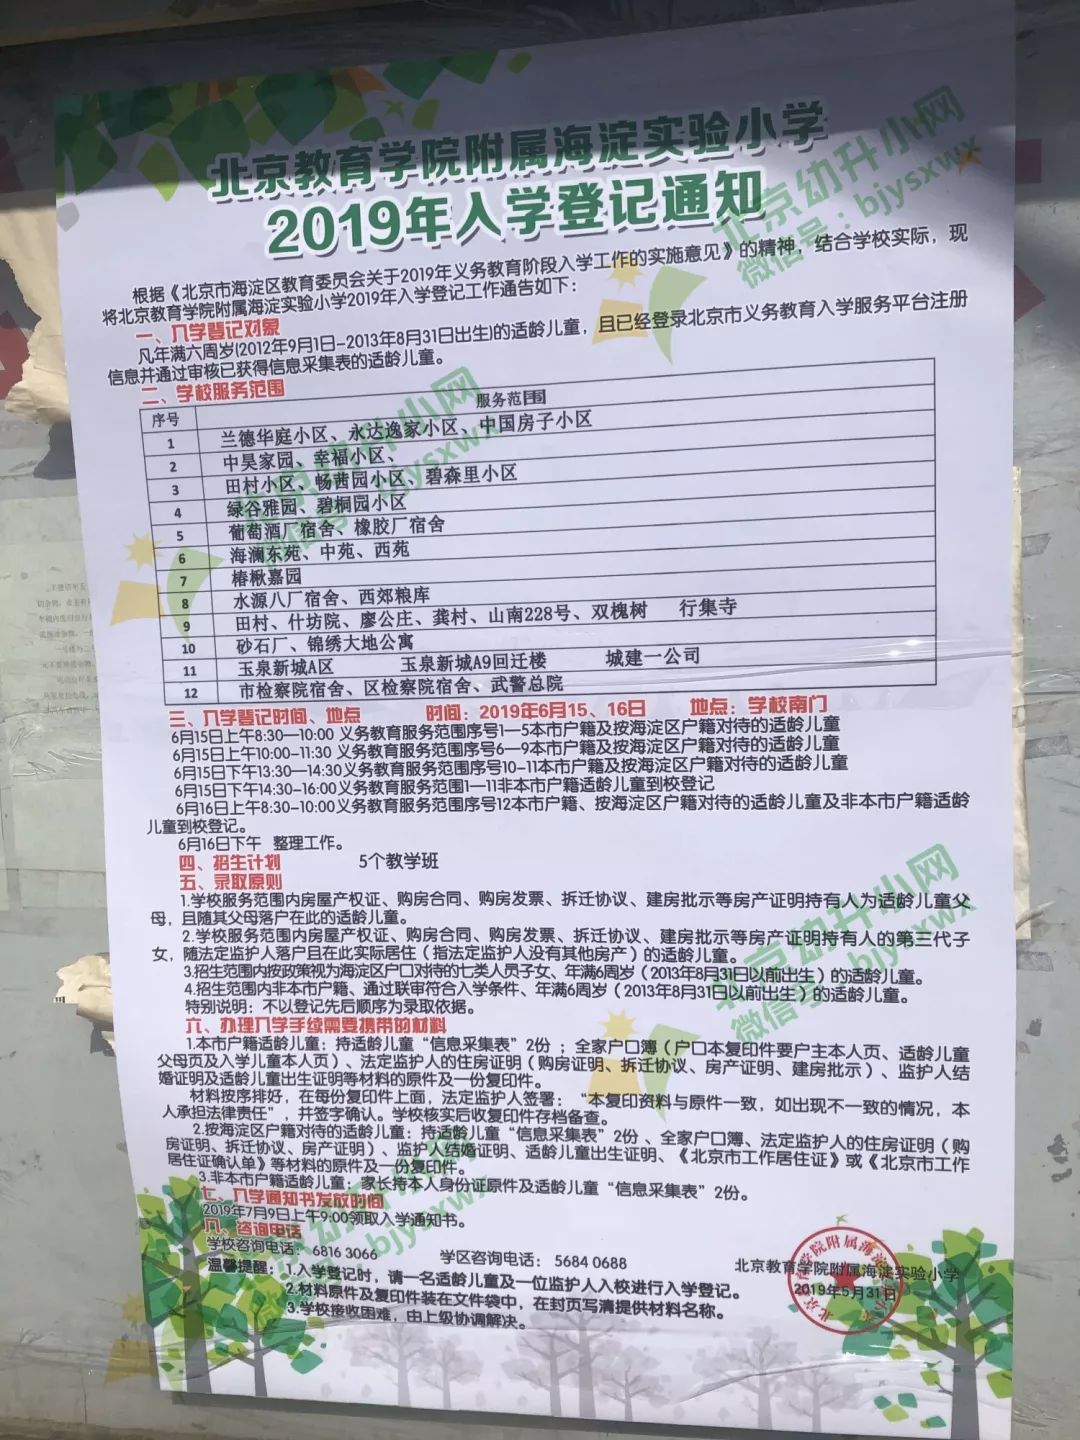 北京教育学院附属海淀实验小学
2019年入学登记通知
根据《北京市海淀区教育委员会关于2019年义务教育阶段入学工作的实施意见》的精神，结合学校实际，现
将北京教育学院附属海淀实验小学2019年入学登记工作通告如下：
一、入学登记对象
凡年满六周岁(2012年9月1日-2013年8月31日出生)的适龄儿童，且已经登录北京市义务教育入学服务平台注册
信息并通过审核已获得信息采集表的适龄儿童。
二、学校服务范围
序号 服务范围
1 兰德华庭小区、永达逸家小区、中国房子小区
2 中昊家园、幸福小区、
3 田村小区、畅茜园小区、碧森里小区
4 绿谷雅园、碧桐园小区
5 葡萄酒厂宿舍、橡胶厂宿舍
6 海澜东苑、中苑、西苑
7 椿楸嘉园
8 水源八厂宿舍、西郊粮库
9 田村、什坊院、廖公庄、龚村、山南228号、双槐树 行集寺
10 砂石厂、锦绣大地公寓
11 玉泉新城A区 玉泉新城A9回迁楼 城建一公司
12 市检察院宿舍、区检察院宿舍、武警总院
三、入学登记时间、地点 时间：2019年6月15、16日 地点：学校南门
6月15日上午8:30—10:00 义务教育服务范围序号1—5本市户籍及按海淀区户籍对待的适龄儿童
6月15日上午10:00-11:30 义务教育服务范围序号6—9本市户籍及按海淀区户籍对待的适龄儿童
6月15日下午13:30—14:30义务教育服务范围序号10-11本市户籍及按海淀区户籍对待的适龄儿童
6月15日下午14:30-16:00义务教育服务范围1—11非本市户籍适龄儿童到校登记
6月16日上午8:30-10:00义务教育服务范围序号12本市户籍、按海淀区户籍对待的适龄儿童及非本市户籍适龄
儿童到校登记。
6月16日下午 整理工作。
四、招生计划 5个教学班
五、录取原则
1.学校服务范围内房屋产权证、购房合同、购房发票、拆迁协议、建房批示等房产证明持有人为适龄儿童父
母，且随其父母落户在此的适龄儿童。
2.学校服务范围内房屋产权证、购房合同、购房发票、拆迁协议、建房批示等房产证明持有人的第三代子
女，随法定监护人落户且在此实际居住（指法定监护人没有其他房产）的适龄儿童。
3.招生范围内按政策视为海淀区户口对待的七类人员子女、年满6周岁（2013年8月31日以前出生）的适龄儿童。
4.招生范围内非本市户籍、通过联审符合入学条件、年满6周岁（2013年8月31日以前出生）的适龄儿童。
特别说明：不以登记先后顺序为录取依据。
六、办理入学手续需要携带的材料
1.本市户籍适龄儿童：持适龄儿童“信息采集表”2份 ；全家户口簿（户口本复印件要户主本人页、适龄儿童
父母页及入学儿童本人页）、法定监护人的住房证明（购房证明、拆迁协议、房产证明、建房批示）、监护人结
婚证明及适龄儿童出生证明等材料的原件及一份复印件。
材料按序排好，在每份复印件上面，法定监护人签署：“本复印资料与原件一致，如出现不一致的情况，本
人承担法律责任”，并签字确认。学校核实后收复印件存档备查。
2.按海淀区户籍对待的适龄儿童：持适龄儿童“信息采集表”2份 、全家户口簿、法定监护人的住房证明（购
房证明、拆迁协议、房产证明）、监护人结婚证明、适龄儿童出生证明、《北京市工作居住证》或《北京市工作
居住证确认单》等材料的原件及一份复印件。
3.非本市户籍适龄儿童：家长持本人身份证原件及适龄儿童“信息采集表”2份。
七、入学通知书发放时间
2019年7月9日上午9:00领取入学通知书。
八、咨询电话
学校咨询电话：6816 3066 学区咨询电话：5684 0688
温馨提醒：1.入学登记时，请一名适龄儿童及一位监护人入校进行入学登记。
2.材料原件及复印件装在文件袋中，在封页写清提供材料名称。
3.学校接收困难，由上级协调解决。
北京教育学院附属海淀实验小学
2019年5月31日
北京幼升小网
微信号：bjysxwx
北京幼升小网
微信号：bjysxwx
北京幼升小网
微信号：bjysxwx